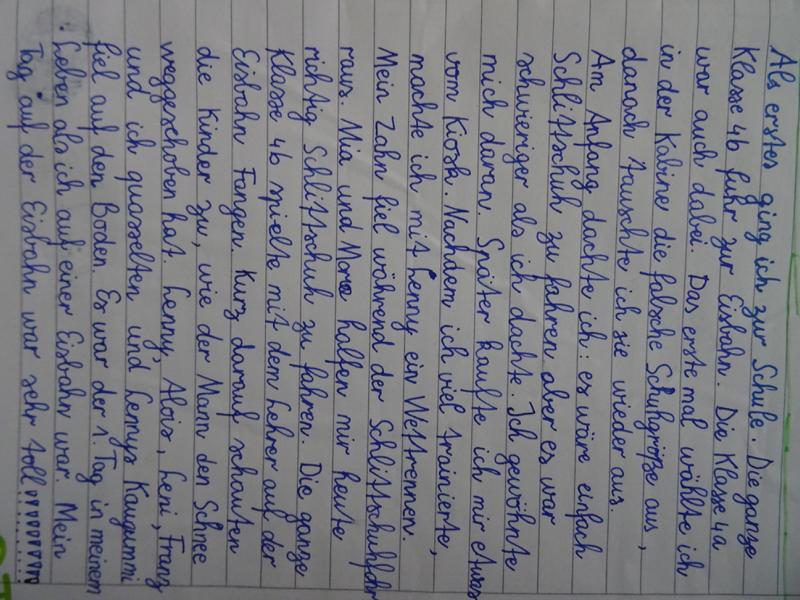 Als erstes ging ich zur Schule. Die ganze
Klasse 4b fuhr zur Eisbahn. Die Klasse 4a
war auch dabei. Das erste mal wählte ich
in der Kabine die falsche Schuhgröße aus,
danach tauschte ich sie wieder aus.
Am Anfang dachte ich: es wäre einfach
Schlittschuh zu fahren aber es war
schwieriger als ich dachte. Ich gewöhnte
mich daran. Später kaufte ich mir etwas
vom Kiosk. Nachdem ich viel trainierte,
machte ich mit Lenny ein Wettrennen.
Mein Zahn fiel während der Schlittschuhfahr
raus. Nia und Mona halfen mir heute
richtig Schlittschuh zu fahren. Die ganze
Klasse 4b spielte mit dem Lehrer auf der
Eisbahn Fangen. Kurz darauf schauten
die Kinder zu, wie der Mann den Schnee
weggeschoben hat. Lenny, Alois, Leni, Franz
und ich quasselten und Lennys Kaugummi
fiel auf den Boden. Es war der 1. Tag in meinem
Leben als ich auf einer Eisbahn war. Mein
Tag auf der Eisbahn war sehr toll!!!!!!!!!